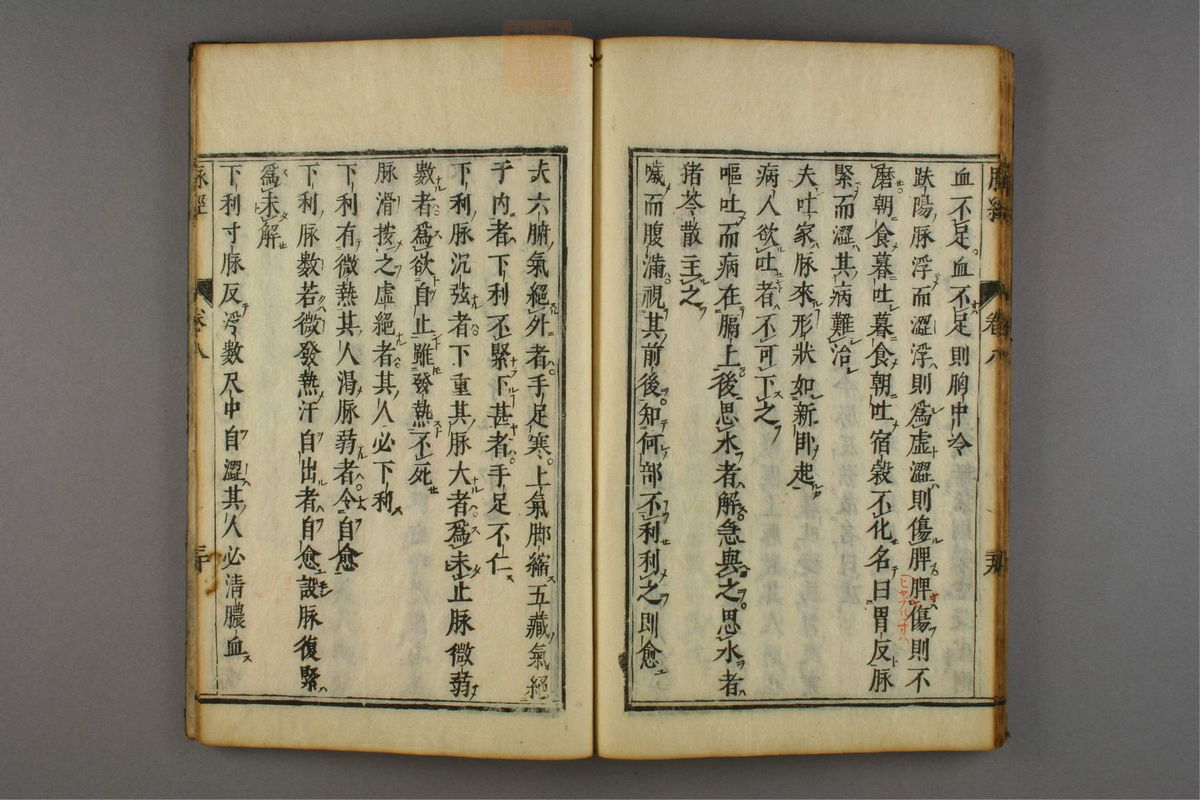 血不足血不足則胸中冷
趺陽脉浮而澀浮則爲虚澀則傷脾脾傷則不
磨朝食暮吐暮食朝吐宿穀不化名曰胃反脉
緊而澀其病難治
夫吐家脉來形狀如新卧起
病人欲吐者不可下之
嘔吐而病在膈上後思水者解急與之思水者
猪苓散主之
噦而腹滿視其前後知何部不利利之即愈
夫六腑氣絕外者手足寒上氣脚縮五藏氣絕
于内者下利不緊下甚者手足不仁
下利脉沉弦者下重其脉大者爲未止脉微弱
數者爲欲自止雖發熱不死
脉滑按之虚絕者其人必下利
下利有微熱其人渴脉弱者令自愈
下利脉數若微發熱汗自出者自愈設脉復緊
爲未解
下利寸脉反浮數尺中自澀其人必清膿血
脉經
卷八